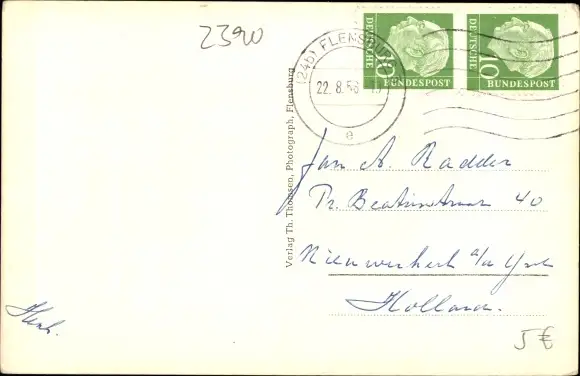 2390
DEUTSCHE
BUNDESPOST
DEUTSCHE
10
BUNDESPOST
(24b) FLENSBURG
22.8.56
e
Verlag Th. Thomsen, Photograph, Flensburg
Jan A. Radder
Pr. Beatrixstraat 40
Nieuwerkerk a/d Yssel
Holland.
5€